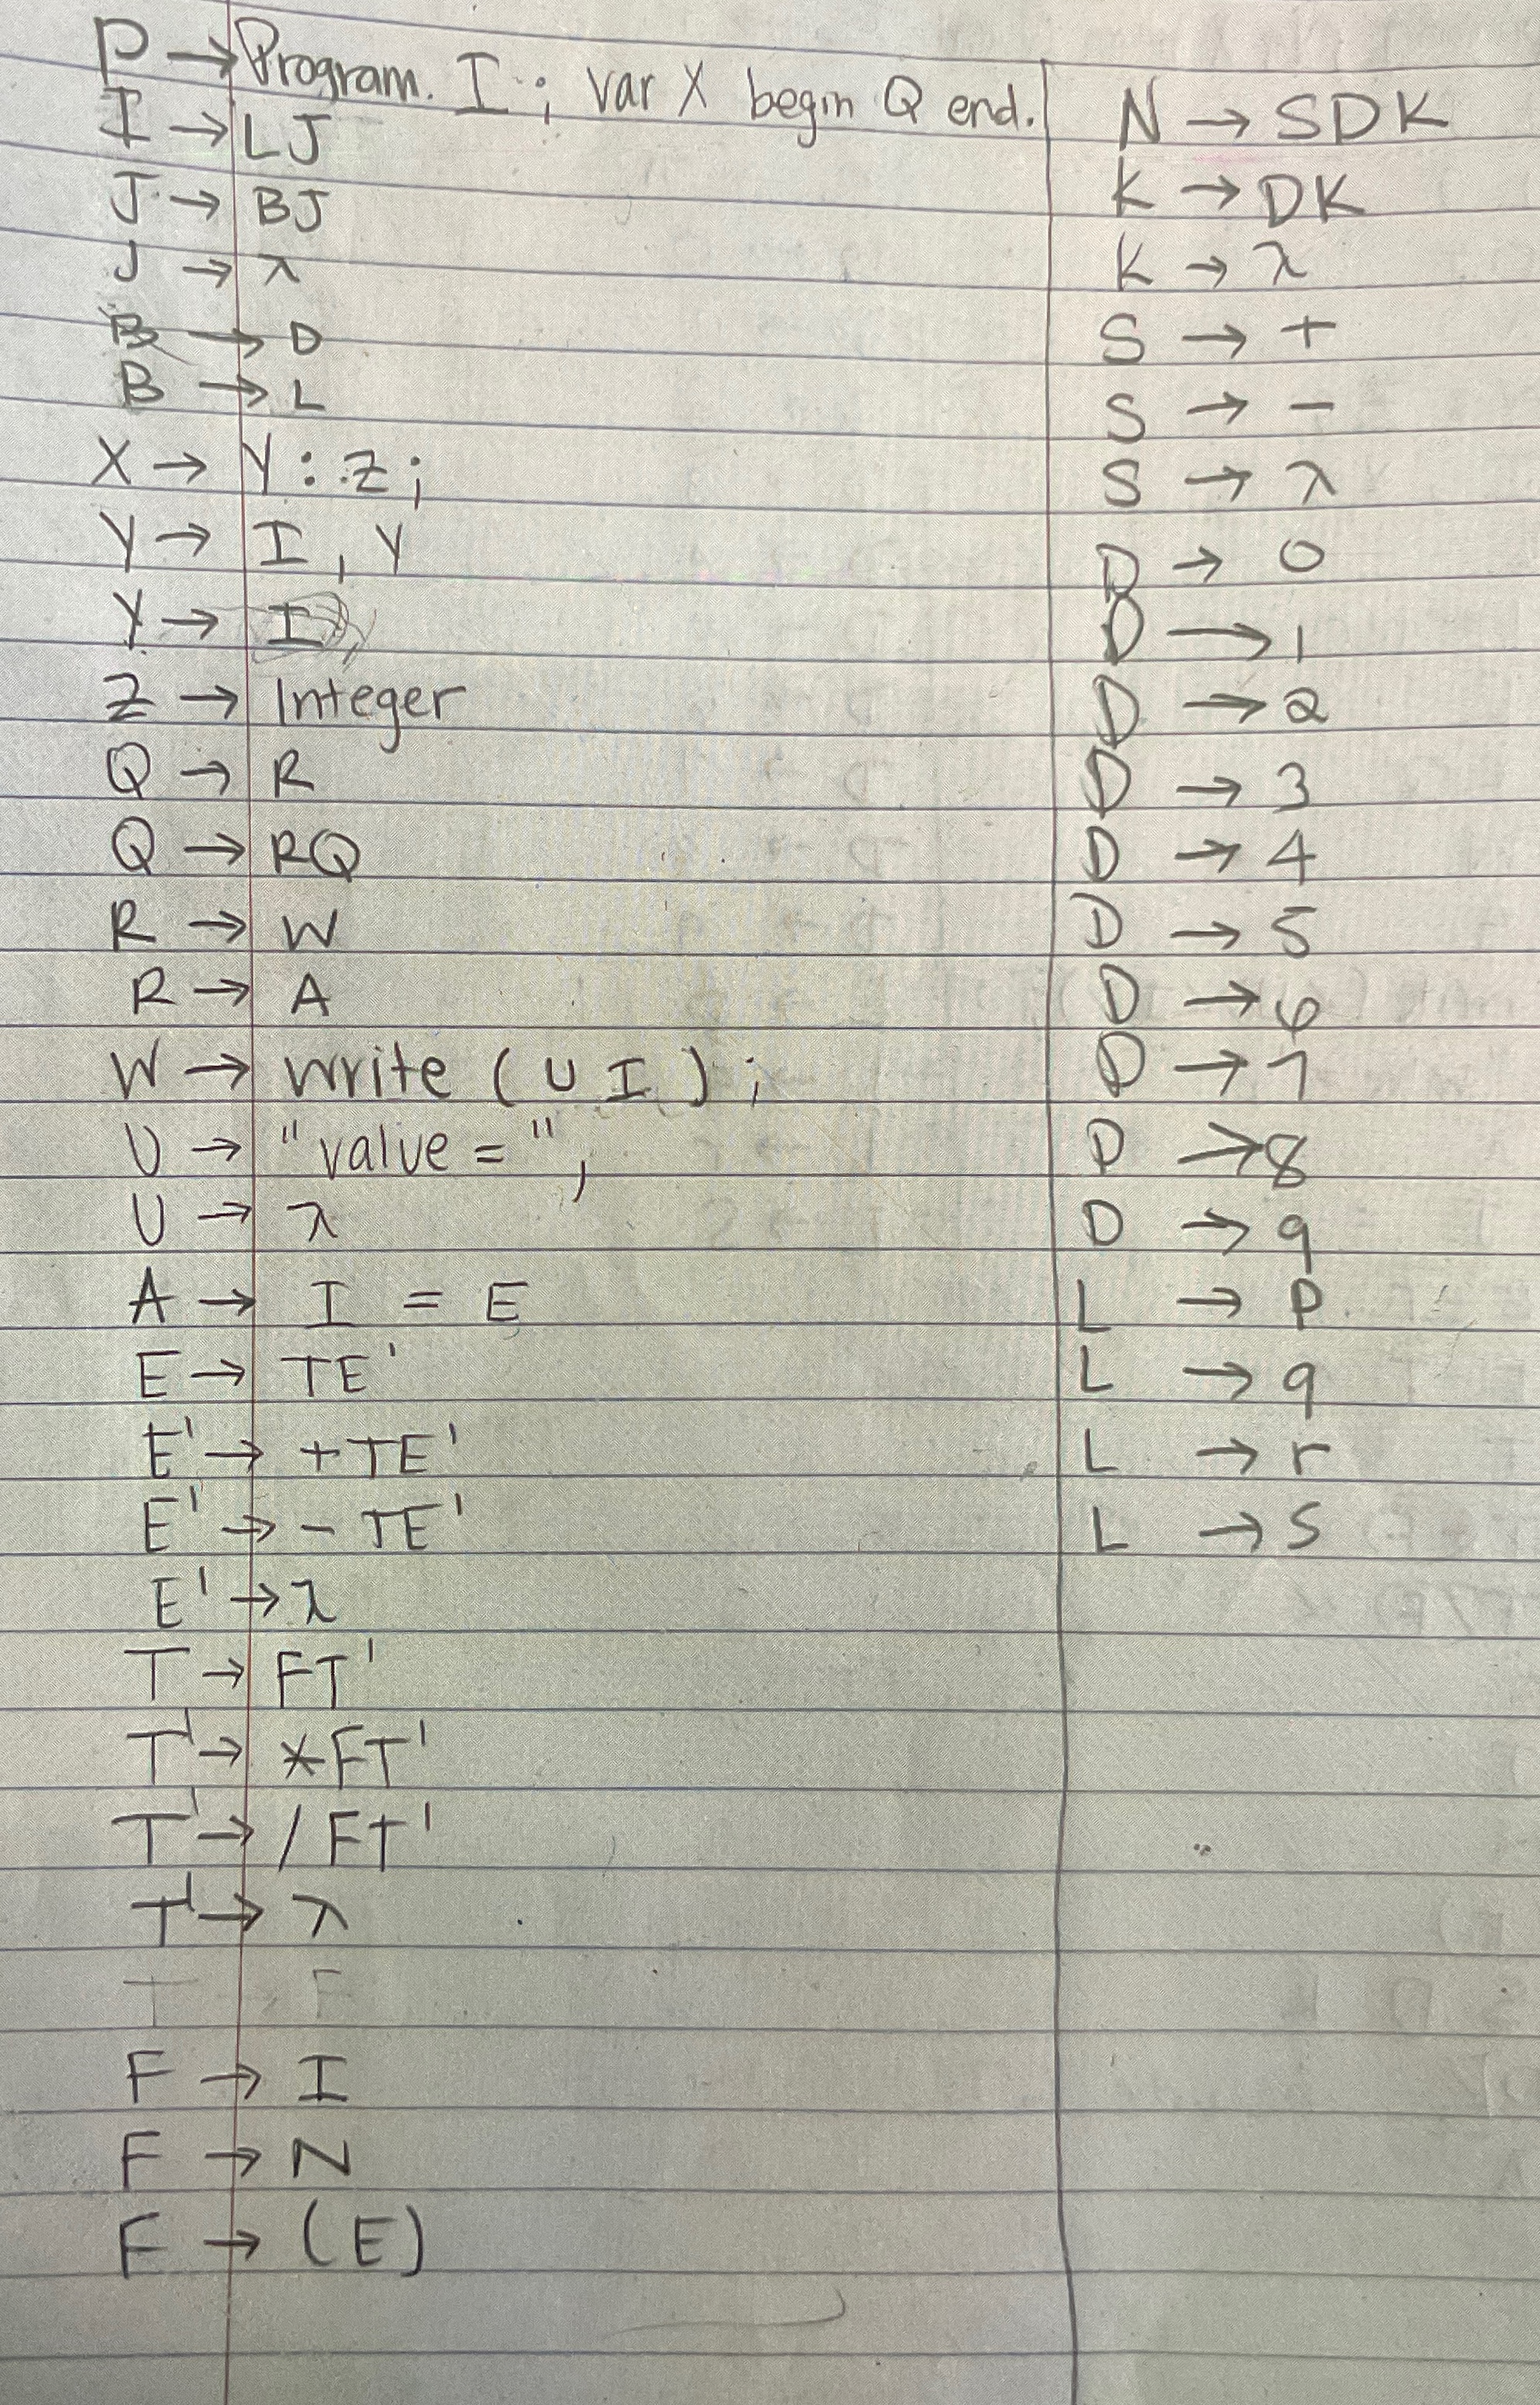 P → Program. I ; var X begin Q end.
I → LJ
J → BJ
J → λ
B → D
B → L
X → Y : Z ;
Y → I , Y
Y → I
Z → Integer
Q → R
Q → RQ
R → W
R → A
W → write ( U I ) ;
U → "value = " ,
U → λ
A → I = E
E → TE'
E' → +TE'
E' → - TE'
E' → λ
T → FT'
T' → *FT'
T' → / FT'
T' → λ
T → F
F → I
F → N
F → (E)
N → SDK
K → DK
K → λ
S → +
S → -
S → λ
D → 0
D → 1
D → 2
D → 3
D → 4
D → 5
D → 6
D → 7
D → 8
D → 9
L → p
L → q
L → r
L → s